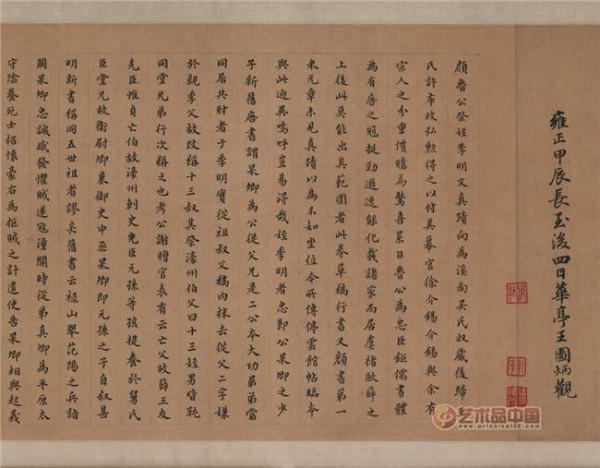 雍正甲辰長至後四日華亭王圖炳觀
顏魯公祭姪季明文真蹟向為溪南吳氏收藏後歸
氏許布政弘勲得之以付其幕官徐介錫介錫與余有
宗人之分重價購為驚喜累日魯公為忠臣鉅儒書體
為有唐之冠挺勁遒逸能化裁諸家而居虞褚歐薛之
上後此莫能出其範圍者此卷草稿行書又顏書第一
米元章未見真蹟以為不如坐位今所傳停雲館帖臨本
與此逈異嗚呼豈易得哉姪季明者忠節公杲卿之少
子新舊唐書謂杲卿為公從父兄是二公本大功弟弟當
同居共財者于季明實從祖叔父稿內抹去從父二字嫌
於親季父故改稱十三叔其祭濠州伯父曰十三姪男皆就
同堂兄弟行次稱之也考公謝贈官表有云亡父故薛王友
先臣惟貞亡伯故濠州刺史先臣元孫等孩提養於舅氏
臣堂兄故衛尉卿兼御史中丞杲卿即元孫之子自叙甚
明新書稱同五世祖者謬矣舊書云祿山舉范陽之兵詣
闕杲卿忠誠感發懼賊遂寇潼關時從弟真卿為平原太
守陰養死士招懷豪右為拒賊之計遣使告杲卿相與起義
艺术品中国
www.artchina168.com